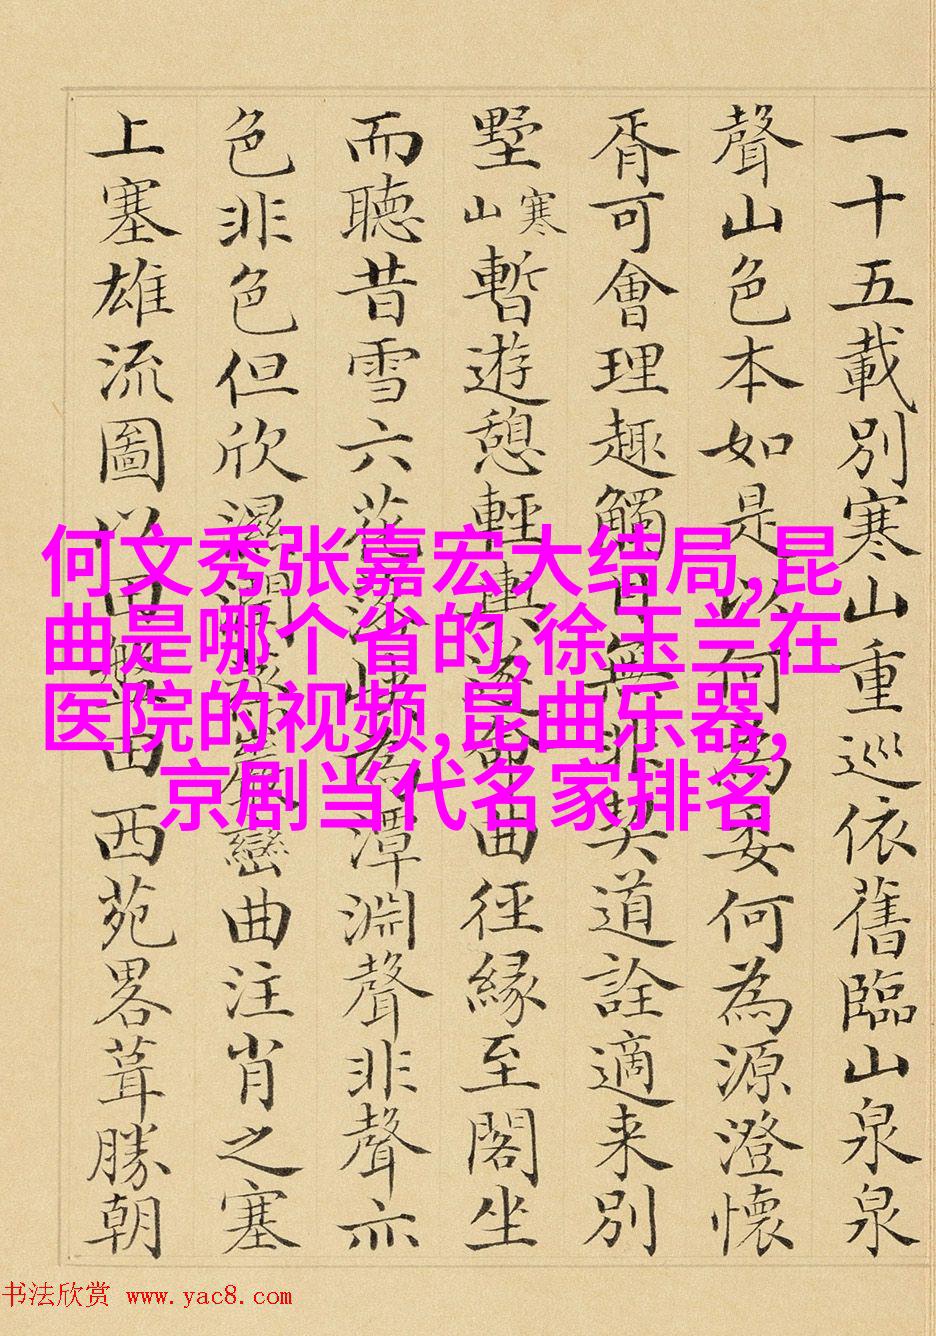 一十五載別寒山重巡依舊臨山泉泉
聲山色本如是以何為委何為源澄懷
胥可會理趣觸目無非契道詮適来別
墅寒山暫遊憩輕輿曲徑緣至閣坐
而聽昔雪六花為潭淵聲非聲亦
色非色但欣濕巒曲注肖之塞
上塞雄流圖以西苑畧葺勝朝
何文秀张嘉宏大结局,昆
曲是哪个省的,徐玉兰在
医院的视频,昆曲乐器,
京剧当代名家排名
书法欣赏 www.yac8.com